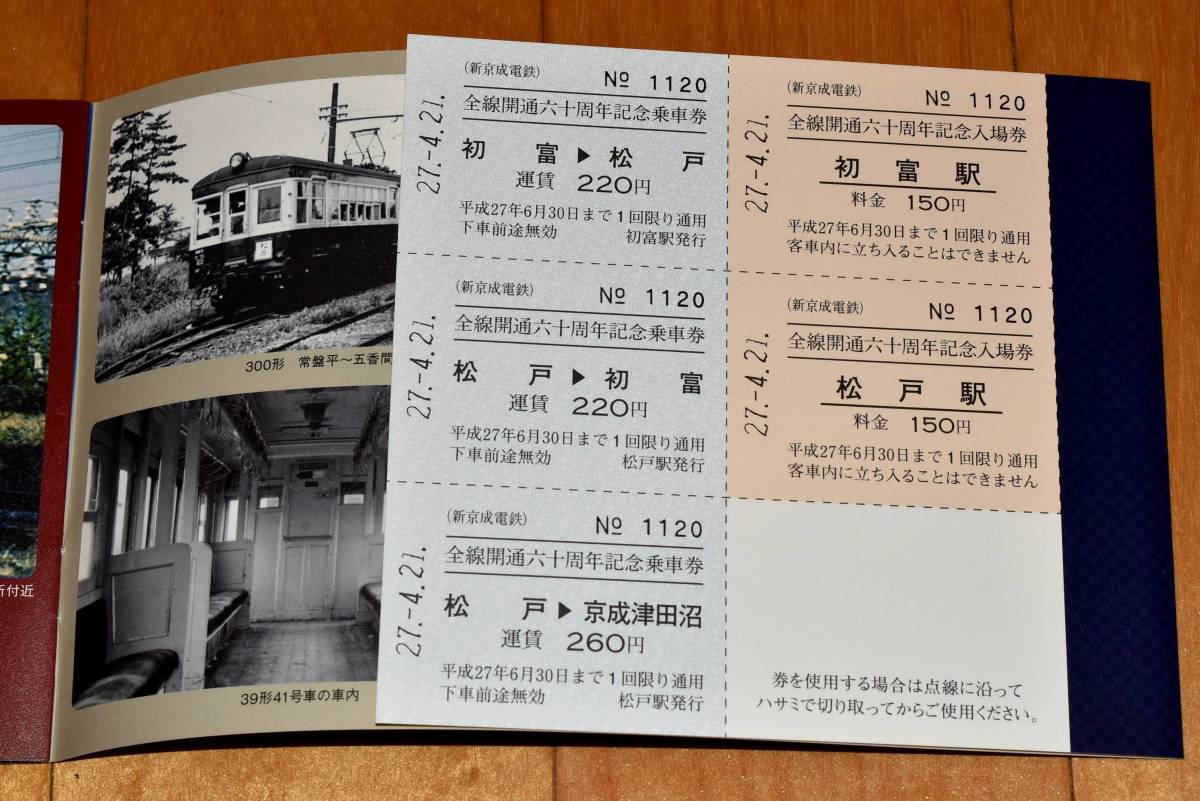 所付近
300形 常盤平〜五香間
39形41号車の車内
27.-4.21.
(新京成電鉄) № 1120
全線開通六十周年記念乗車券
初富▶松戸
運賃 220円
平成27年6月30日まで1回限り通用
下車前途無効 初富駅発行
27.-4.21.
(新京成電鉄) № 1120
全線開通六十周年記念乗車券
松戸▶初富
運賃 220円
平成27年6月30日まで1回限り通用
下車前途無効 松戸駅発行
27.-4.21.
(新京成電鉄) № 1120
全線開通六十周年記念乗車券
松戸▶京成津田沼
運賃 260円
平成27年6月30日まで1回限り通用
下車前途無効 松戸駅発行
27.-4.21.
(新京成電鉄) № 1120
全線開通六十周年記念入場券
初富駅
料金 150円
平成27年6月30日まで1回限り通用
客車内に立ち入ることはできません
27.-4.21.
(新京成電鉄) № 1120
全線開通六十周年記念入場券
松戸駅
料金 150円
平成27年6月30日まで1回限り通用
客車内に立ち入ることはできません
券を使用する場合は点線に沿って
ハサミで切り取ってからご使用ください。